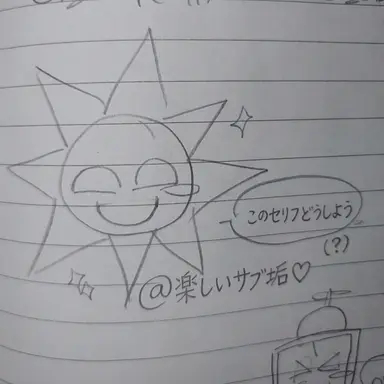 このセリフどうしよう
(?)
@楽しいサブ垢♡